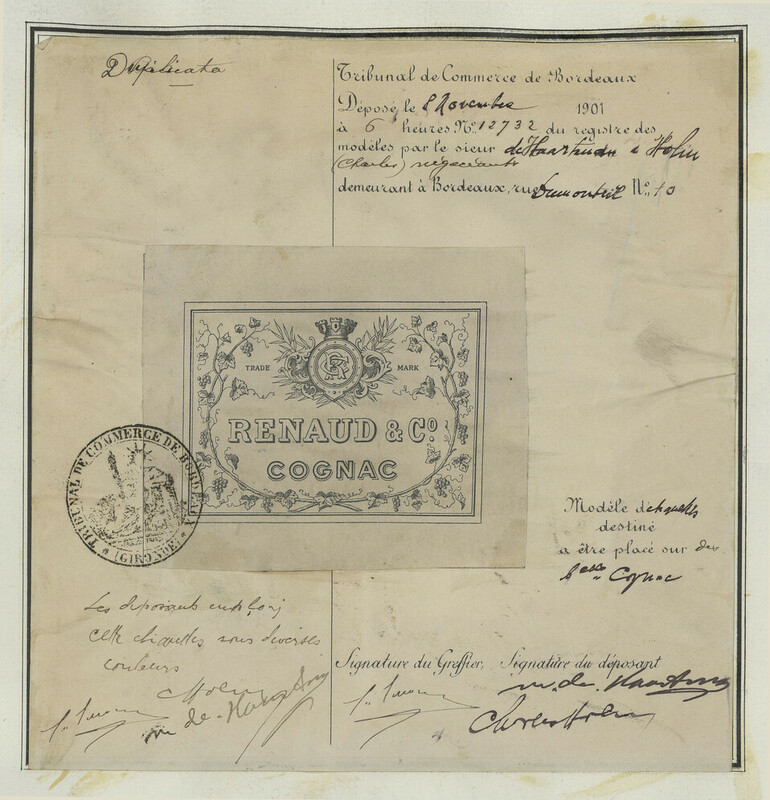 Duplicata
Tribunal de Commerce de Bordeaux
Déposé le 8 Novembre 1901
à 6 heures No. 12732 du registre des
modèles par le sieur de Haartman & Holm
(Charles) négociants
demeurant à Bordeaux, rue Dumonteil No. 10
TRADE MARK
RENAUD & Co
COGNAC
TRIBUNAL DE COMMERCE DE BORDEAUX
(GIRONDE)
Modèle d'étiquettes
destiné
a être placé sur des
Cognac
Les déposants
cette étiquettes sous diverses
couleurs
Signature du Greffier, Signature du déposant
Holm
de Haartman
de Haartman
Charles Holm